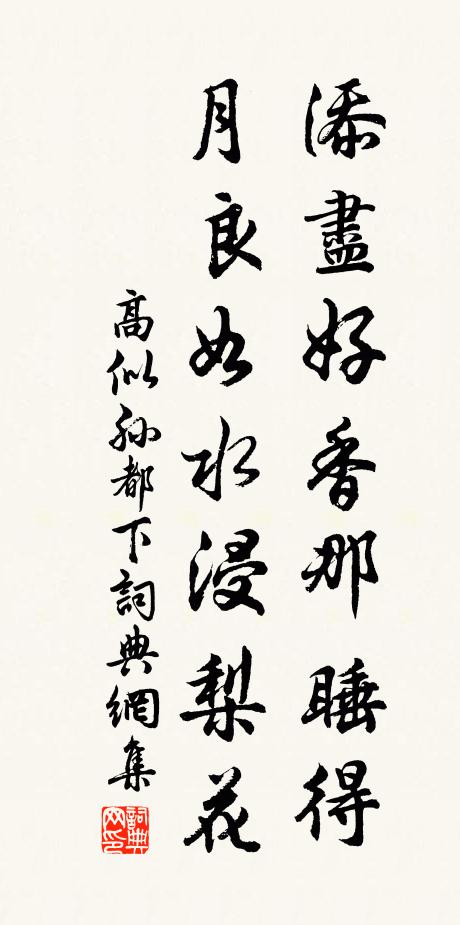 添盡好香那睡得
月良如水浸梨花
高似孫都下詞典網集
詞典网印